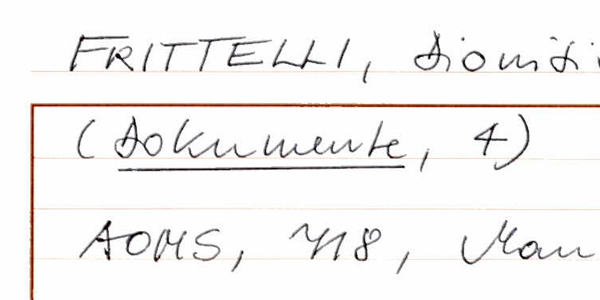 FRITTELLI, Dionisi
(Dokumente, 4)
AOMS, 418, Man